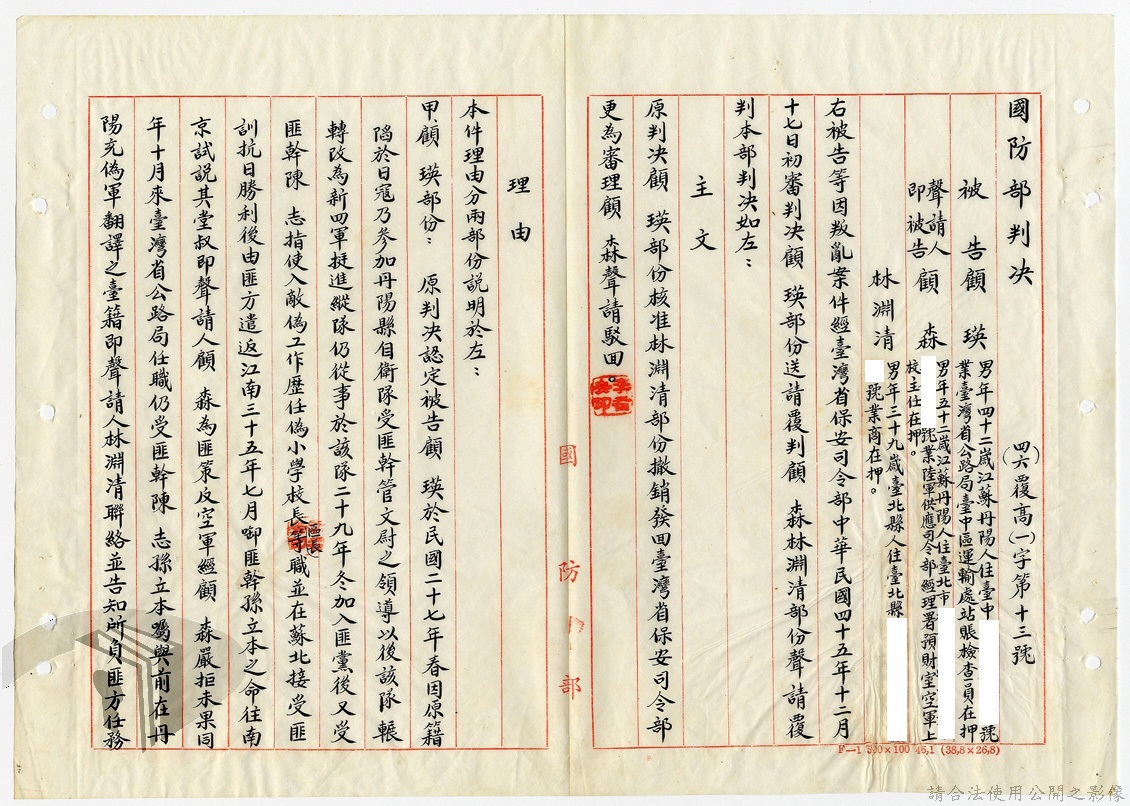 國防部判決
(四六)覆高(一)字第十三號
被告顧瑛
男年四十二歲江蘇丹陽人住臺中
號
業臺灣省公路局臺中區運輸處站賬檢查員在押
聲請人
即被告
顧森
男年五十二歲江蘇丹陽人住臺北市
號業陸軍供應司令部經理署預財室空軍上
校主任在押。
林淵清
男年三十九歲臺北縣人住臺北縣
號業商在押。
右被告等因叛亂案件經臺灣省保安司令部中華民國四十五年十二月
十七日初審判決顧瑛部份送請覆判顧森林淵清部份聲請覆
判本部判決如左:
主文
原判決顧瑛部份核准林淵清部份撤銷發回臺灣省保安司令部
更為審理顧森聲請駁回。
理由
本件理由分兩部份說明於左:
甲、顧瑛部份:原判決認定被告顧瑛於民國二十七年春因原籍
陷於日寇乃參加丹陽縣自衛隊受匪幹管文尉之領導以後該隊輾
轉改為新四軍挺進縱隊仍從事於該隊二十九年冬加入匪黨後又受
匪幹陳志指使入敵偽工作歷任偽小學校長區長等職並在蘇北接受匪
訓抗日勝利後由匪方遣返江南三十五年七月啣匪幹孫立本之命往南
京試說其堂叔即聲請人顧森為匪策反空軍經顧森嚴拒未果同
年十月來臺灣省公路局任職仍受匪幹陳志孫立本囑與前在丹
陽充偽軍翻譯之臺籍即聲請人林淵清聯絡並告知所負匪方任務
國防部
F—1 300×100 46,1 (38,8×26,8)
請合法使用公開之影像